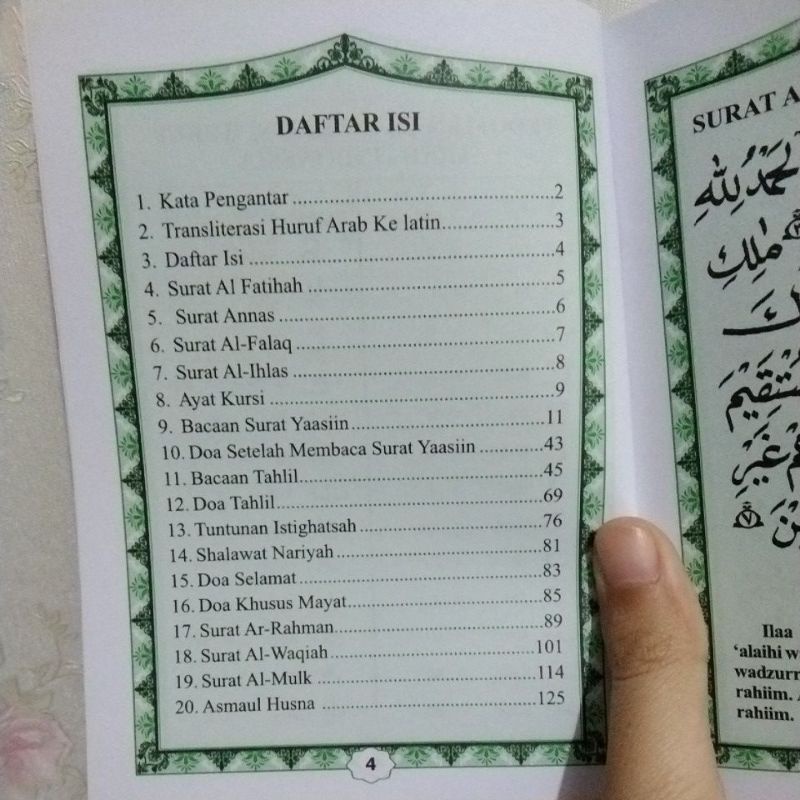 DAFTAR ISI
1. Kata Pengantar ........................................................2
2. Transliterasi Huruf Arab Ke latin........................3
3. Daftar Isi ................................................................4
4. Surat Al Fatihah ....................................................5
5. Surat Annas ..........................................................6
6. Surat Al-Falaq ......................................................7
7. Surat Al-Ihlas ......................................................8
8. Ayat Kursi ............................................................9
9. Bacaan Surat Yaasiin..........................................11
10. Doa Setelah Membaca Surat Yaasiin ............43
11. Bacaan Tahlil......................................................45
12. Doa Tahlil............................................................69
13. Tuntunan Istighatsah ........................................76
14. Shalawat Nariyah ..............................................81
15. Doa Selamat........................................................83
16. Doa Khusus Mayat..............................................85
17. Surat Ar-Rahman................................................89
18. Surat Al-Waqiah ..............................................101
19. Surat Al-Mulk ..................................................114
20. Asmaul Husna ..................................................125
4
SURAT A
الْحَمْدُ لِلّٰهِ
مٰلِكِ
غَيْرِ
Ilaa
‘alaihi w
wadzurr
rahiim. A
rahiim.